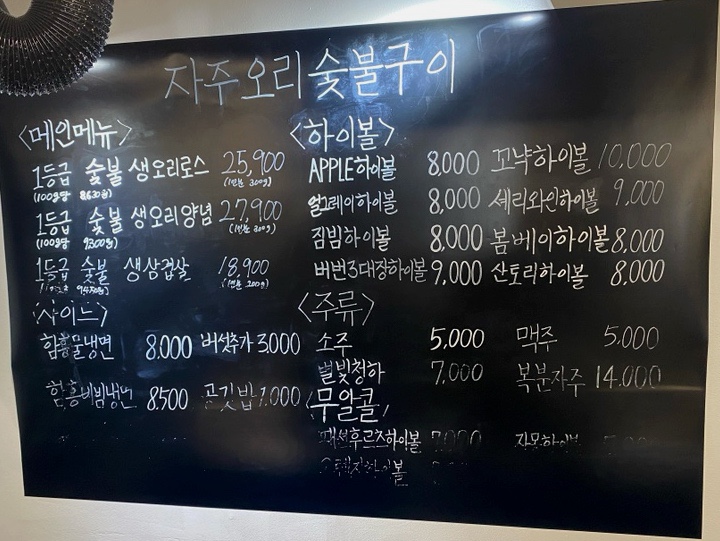 자주오리 숯불구이
<메인메뉴>
1등급 숯불 생오리로스 25,900
(100g당 8630원) (1인분 300g)
1등급 숯불 생오리양념 27,900
(100g당 9300원) (1인분 300g)
1등급 숯불 생삼겹살 18,900
9450원) (1인분 200g)
<사이드>
함흥물냉면 8.000 버섯추가 3,000
함흥비빔냉면 8.500 공깃밥 1.000
<하이볼>
APPLE하이볼 8,000 꼬냑하이볼 10,000
얼그레이하이볼 8,000 셰리와인하이볼 9,000
짐빔하이볼 8,000 봄베이하이볼 8,000
버번3대장하이볼 9,000 산토리하이볼 8,000
<주류>
소주 5,000 맥주 5,000
별빛청하 7,000 복분자주 14.000
<무알콜>
패션후르츠하이볼 7,000 자몽하이볼
하이볼